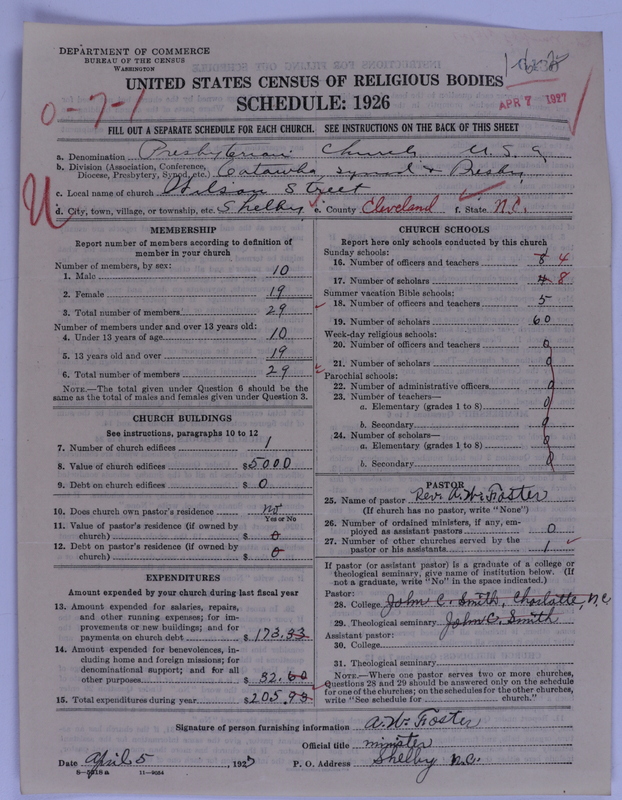 DEPARTMENT OF COMMERCE
BUREAU OF THE CENSUS
WASHINGTON
UNITED STATES CENSUS OF RELIGIOUS BODIES
SCHEDULE: 1926
0-7-1
APR 7 1927
FILL OUT A SEPARATE SCHEDULE FOR EACH CHURCH. SEE INSTRUCTIONS ON THE BACK OF THIS SHEET
a. Denomination Presbyterian Church U.S.A
b. Division (Association, Conference, Diocese, Presbytery, Synod, etc.) Catawba Synod & Presby
c. Local name of church Wilson Street
d. City, town, village, or township, etc. Shelby e. County Cleveland f. State N.C.
MEMBERSHIP
Report number of members according to definition of
member in your church
Number of members, by sex:
1. Male 10
2. Female 19
3. Total number of members 29
Number of members under and over 13 years old:
4. Under 13 years of age 10
5. 13 years old and over 19
6. Total number of members 29
NOTE.—The total given under Question 6 should be
same as the total of males and females given under Question 3.
CHURCH BUILDINGS
See instructions, paragraphs 10 to 12
7. Number of church edifices 1
8. Value of church edifices $5000
9. Debt on church edifices $ 0
10. Does church own pastor's residence no
Yes or No
11. Value of pastor's residence (if owned by
church) $ 0
12. Debt on pastor's residence (if owned by
church) $ 0
EXPENDITURES
Amount expended by your church during last fiscal year
13. Amount expended for salaries, repairs,
and other running expenses; for im-
provements or new buildings; and for
payments on church debt $ 173.33
14. Amount expended for benevolences, in-
cluding home and foreign missions; for
denominational support; and for all
other purposes $ 32.60
15. Total expenditures during year $ 205.93
CHURCH SCHOOLS
Report here only schools conducted by this church
Sunday schools:
16. Number of officers and teachers 8 4
17. Number of scholars 4 8
Summer vacation Bible schools:
18. Number of officers and teachers 5
19. Number of scholars 60
Week-day religious schools:
20. Number of officers and teachers 0
21. Number of scholars 0
Parochial schools:
22. Number of administrative officers 0
23. Number of teachers—
a. Elementary (grades 1 to 8) 0
b. Secondary 0
24. Number of scholars—
a. Elementary (grades 1 to 8) 0
b. Secondary 0
PASTOR
25. Name of pastor Rev. A. W. Foster
(If church has no pastor, write "None")
26. Number of ordained ministers, if any, em-
ployed as assistant pastors 0
27. Number of other churches served by the
pastor or his assistants 1
If pastor (or assistant pastor) is a graduate of a college or
theological seminary, give name of institution below. (If
not a graduate, write "No" in the space indicated.)
Pastor:
28. College John C. Smith, Charlotte, N.C.
29. Theological seminary John C. Smith
Assistant pastor:
30. College
31. Theological seminary
NOTE.—Where one pastor serves two or more churches,
Questions 28 and 29 should be answered only on the schedule
for one of the churches; on the schedules for the other churches,
write "See schedule for church."
Signature of person furnishing information A. W. Foster
Official title minister
Date April 5, 1927 P. O. Address Shelby N.C.
11—9054